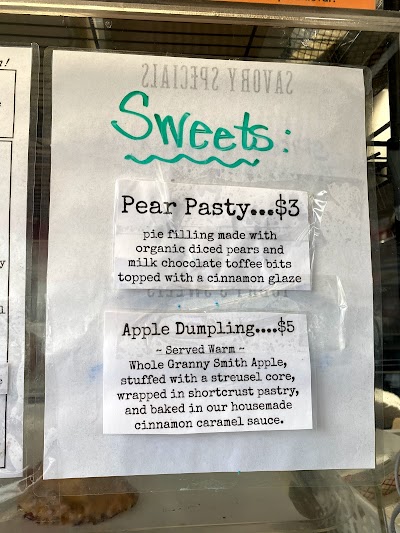 SAVORY SPECIALS
Sweets:
Pear Pasty...$3
pie filling made with
organic diced pears and
milk chocolate toffee bits
topped with a cinnamon glaze
Apple Dumpling....$5
~ Served Warm ~
Whole Granny Smith Apple,
stuffed with a streusel core,
wrapped in shortcrust pastry,
and baked in our housemade
cinnamon caramel sauce.